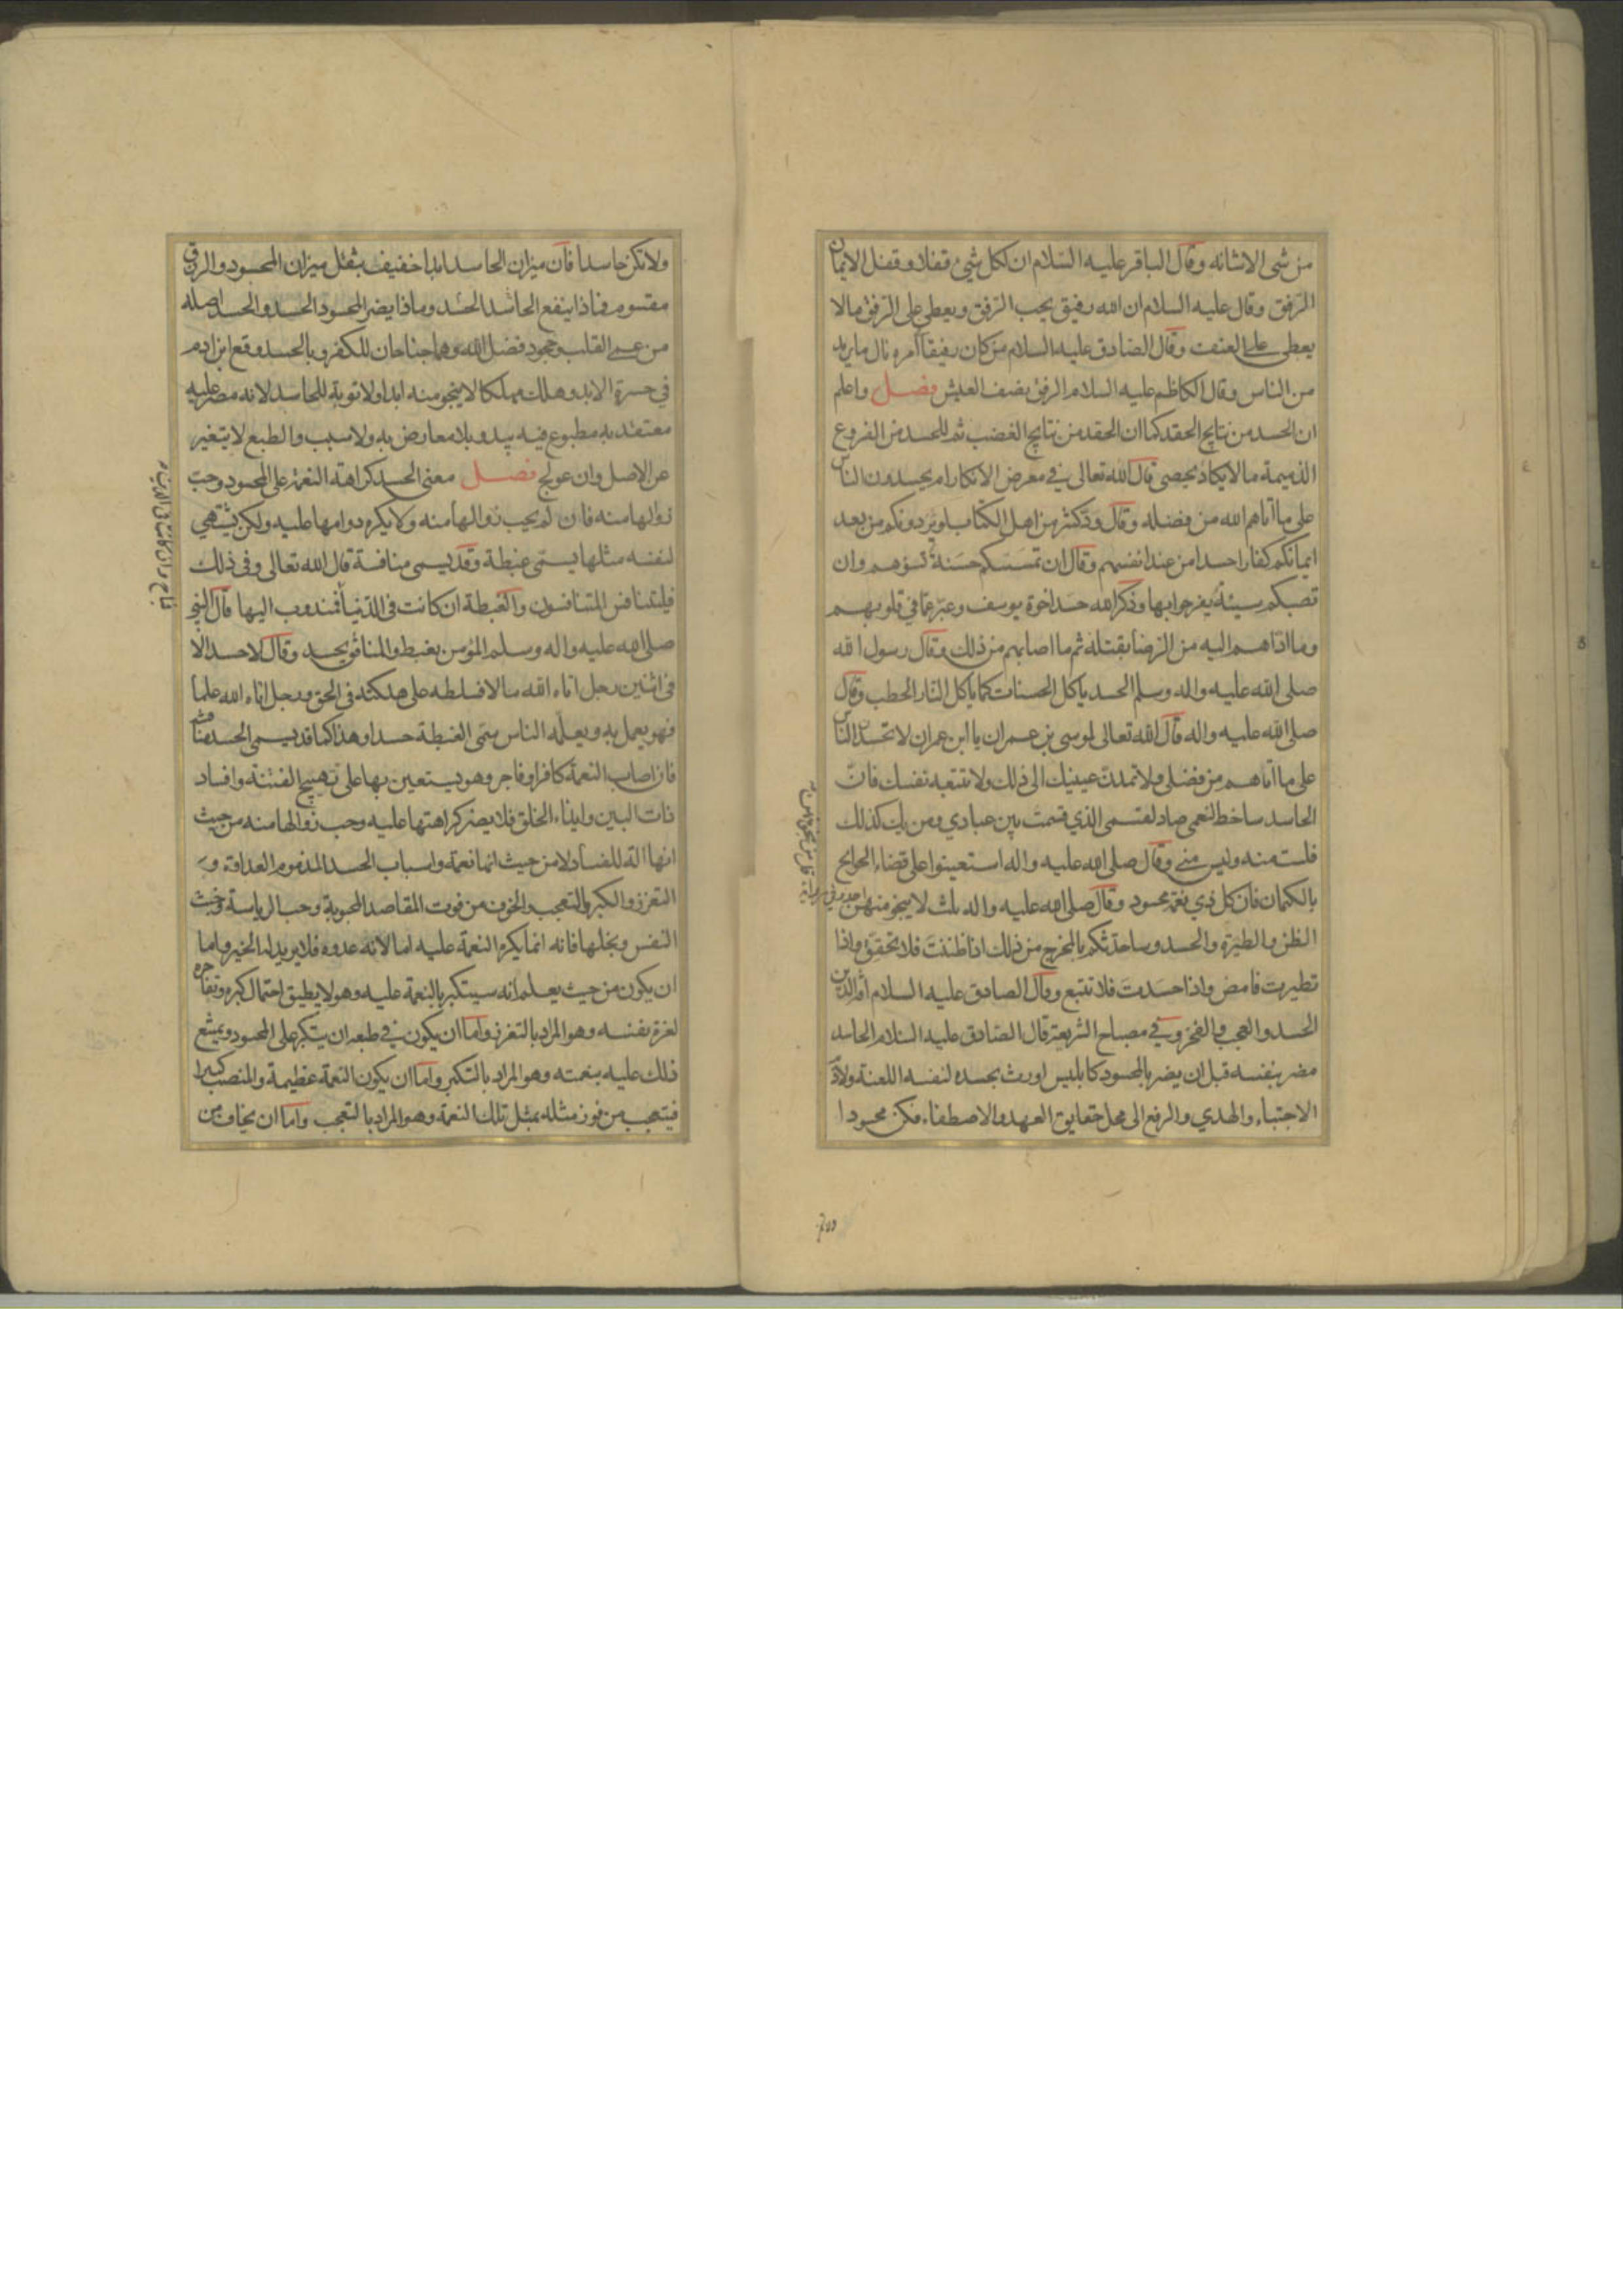 من شئ الاشانه وقال الباقر عليه السلام ان لكل شئ قفلا وقفل الايمان
الرفق وقال عليه السلام ان الله رفيق يحب الرفق ويعطى على الرفق مالا
يعطى على العنف وقال الصادق عليه السلام من كان رفيقا امره نال ما يريد
من الناس وقال الكاظم عليه السلام الرفق نصف العيش فصل واعلم
ان الحسد من نتايج الحقد كما ان الحقد من نتايج الغضب ثم للحسد من الفروع
الذميمة ما لا يكاد يحصى قال الله تعالى في معرض الانكار ام يحسدون الناس
على ما آتاهم الله من فضله وقال ود كثير من اهل الكتاب لو يردونكم من بعد
ايمانكم كفارا حسدا من عند انفسهم وقال ان تمسسكم حسنة تسؤهم وان
تصبكم سيئة يفرحوا بها وذكر الله حسد اخوة يوسف وعبر عما في قلوبهم
وما اداهم اليه من الرضا بقتله ثم ما اصابهم من ذلك وقال رسول الله
صلى الله عليه واله وسلم الحسد ياكل الحسنات كما ياكل النار الحطب وقال
صلى الله عليه واله قال الله تعالى لموسى بن عمران يا ابن عمران لا تحسدن الناس
على ما آتاهم من فضلى ولا تمدن عينيك الى ذلك ولا تتبعه نفسك فان
الحاسد ساخط لنعمى صاد لقسمى الذي قسمت بين عبادي ومن يك كذلك
فلست منه وليس منى وقال صلى الله عليه واله استعينوا على قضاء الحوايج
بالكتمان فان كل ذي نعمة محسود وقال صلى الله عليه واله ثلث لا ينجو منهن احد
الظن والطيرة والحسد وساحدثكم بالمخرج من ذلك اذا ظننت فلا تحقق واذا
تطيرت فامض واذا حسدت فلا تبتغ وقال الصادق عليه السلام افة الدين
الحسد والعجب والفخر وفي مصباح الشريعة قال الصادق عليه السلام الحاسد
مضر بنفسه قبل ان يضر بالمحسود كابليس اورث بحسده لنفسه اللعنة ولادم
الاجتباء والهدي والرفع الى محل حقايق العهد والاصطفاء فكن محسودا
ولا تكن حاسدا فان ميزان الحاسد ابدا خفيف بثقل ميزان المحسود والرزق
مقسوم فماذا ينفع الحاسد الحسد وماذا يضر المحسود الحسد والحسد اصله
من عمى القلب وجحود فضل الله وهما جناحان للكفر وبالحسد وقع ابن ادم
في حسرة الابد وهلك مهلكا لا ينجو منه ابدا ولا توبة للحاسد لانه مصر عليه
معتقد به مطبوع فيه يبدو بلا معارض به ولا سبب والطبع لا يتغير
عن الاصل وان عولج فصل معنى الحسد كراهة النعمة على المحسود وحب
زوالها منه فان لم يحب زوالها منه ولا يكره دوامها عليه ولكن يشتهي
لنفسه مثلها يسمى غبطة وقد يسمى منافسة قال الله تعالى وفى ذلك
فليتنافس المتنافسون والغبطة ان كانت فى الدنيا فمندوب اليها قال النبي
صلى الله عليه واله وسلم المؤمن يغبط والمنافق يحسد وقال لا حسد الا
فى اثنين رجل اتاه الله مالا فسلطه على هلكته فى الحق ورجل اتاه الله علما
فهو يعمل به ويعلمه الناس سمى الغبطة حسدا وهذا كما قد يسمى الحسد منافسة
فان اصاب النعمة كافر او فاجر وهو يستعين بها على تهييج الفتنة وافساد
ذات البين وايذاء الخلق فلا يضر كراهتها عليه وحب زوالها منه من حيث
انها الة للفساد لا من حيث انها نعمة واسباب الحسد المذموم العداوة و
التعزز والكبر والتعجب والخوف من فوت المقاصد المحبوبة وحب الرياسة وخبث
النفس وبخلها فانه انما يكره النعمة عليه اما لانه عدوه فلا يريد له الخير واما
ان يكون من حيث يعلم انه سيتكبر بالنعمة عليه وهو لا يطيق احتمال كبره وتفاخره
لعزة نفسه وهو المراد بالتعزز واما ان يكون في طبعه ان يتكبر على المحسود ويمتنع
ذلك عليه بنعمته وهو المراد بالتكبر واما ان يكون النعمة عظيمة والمنصب كبيرا
فيتعجب من فوز مثله بمثل تلك النعمة وهو المراد بالتعجب واما ان يخاف من